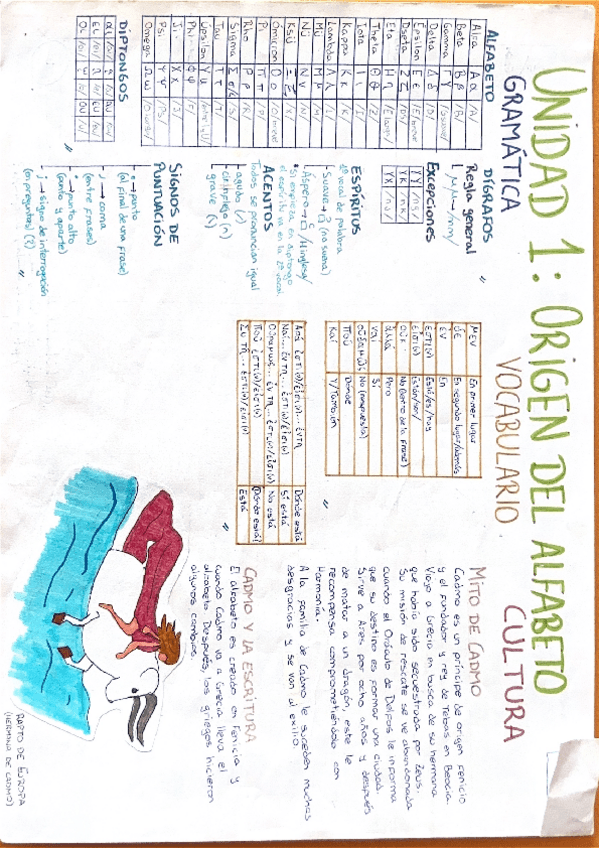 UNIDAD 1: ORIGEN DEL ALFABETO
GRAMÁTICA
ALFABETO
Alfa Α α /A/
Beta Β β /B/
Gamma Γ γ
Delta Δ δ /D/
Epsilon Ε ε
Dseta Ζ ζ /DS/
Eta Η η
Theta Θ θ /Z/
Iota Ι ι /I/
Kappa Κ κ /K/
Lambda Λ λ /L/
Mü Μ μ /M/
Nü Ν ν /N/
Ksü Ξ ξ
Omicron Ο ο
Pi Π π /P/
Rho Ρ ρ /R/
Sigma Σ σ/ς /S/
Tau Τ τ /T/
Üpsilon Υ υ
Phi Φ φ /F/
Ji Χ χ /J/
Psi Ψ ψ /PS/
Omega Ω ω
DIPTONGOS
DÍGRAFOS
Regla general
Excepciones
γγ /ng/
γκ /nk/
γχ /nj/
ESPÍRITUS
1ª vocal de palabra
Suave → (no suena)
Áspero → /H inglesa/
*Si empieza en diptongo
el espíritu va en la 2ª vocal
ACENTOS
Todos se pronuncian igual
agudo (´)
circunflejo (~)
grave (`)
SIGNOS DE
PUNTUACIÓN
. → punto
(al final de una frase)
, → coma
(entre frases)
· → punto alto
(punto y aparte)
; → signo de interrogación
(en preguntas) (?)
VOCABULARIO
μεν En primer lugar
δε En segundo lugar/además
ἐν En
ἐστι(ν) Está/es/hay
εἰσι(ν) Están/son/
οὐκ No (dentro de la frase)
ἀλλά Pero
ναί Sí
οὐδαμῶς No (respuesta)
ποῦ Dónde
καί Y/También
Dónde está
Ναί... ἐν τῃ... ἐστι(ν)/εἰσι(ν) Sí está
Οὐδαμῶς... ἐν τῃ... ἐστι(ν)/εἰσι(ν) No está
Ποῦ ἐστι(ν)/εἰσι(ν) ¿Dónde está?
Ἐν τῃ... ἐστι(ν)/εἰσι(ν) Está
CULTURA
MITO DE CADMO
Cadmo es un príncipe de origen fenicio
y el fundador y rey de Tebas en Beocia
Viajo a Grecia en busca de su hermana
que había sido secuestrada por Zeus.
Su misión de rescate se ve abandonada
cuando el Oráculo de Delfos le informa
que su destino es formar una ciudad
Sirve a Ares por ocho años y después
de matar a un dragón, este le
recompensa comprometiéndolo con
Harmonía.
A la familia de Cadmo le suceden muchas
desgracias y se van al exilio.
CADMO Y LA ESCRITURA
El alfabeto es creado en Fenicia y
cuando Cadmo va a Grecia lleva el
alfabeto. Después, los griegos hicieron
algunos cambios.
RAPTO DE EUROPA
(HERMANA DE CADMO)